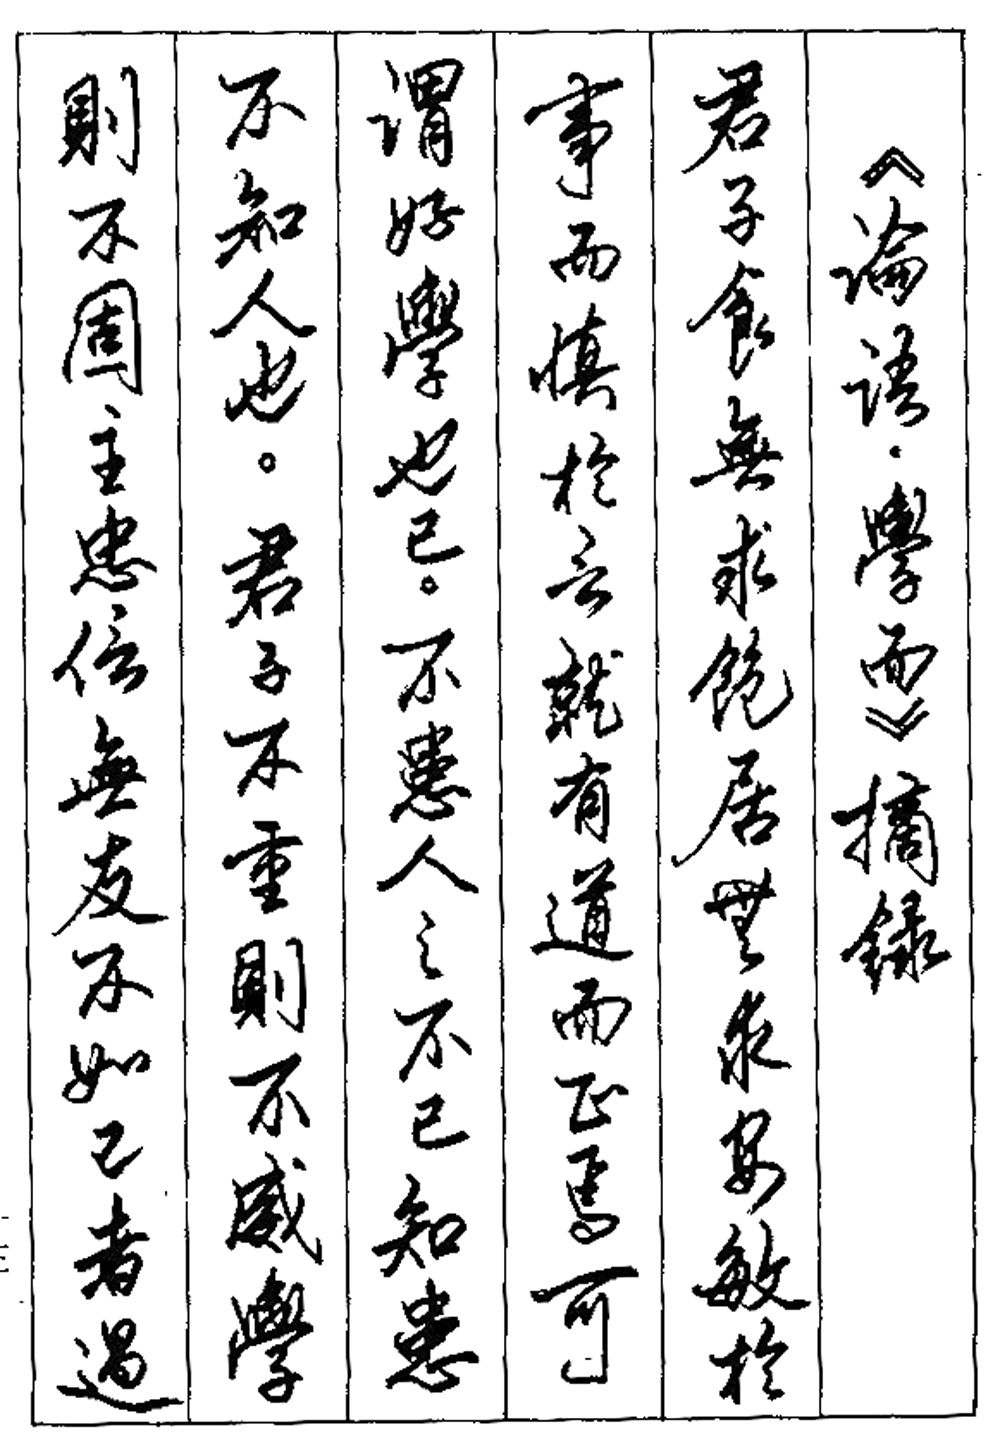 《論語·學而》摘錄
君子食無求飽居無求安敏於
事而慎於言就有道而正焉可
謂好學也已。不患人之不己知患
不知人也。君子不重則不威學
則不固主忠信無友不如己者過